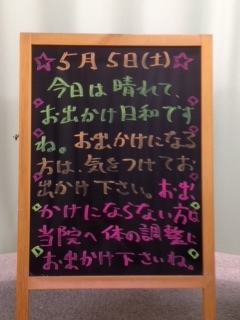 ☆5月5日(土)☆
今日は晴れて、
お出かけ日和です
ね。お出かけになる
方は、気をつけてお
出かけ下さい。お出
かけにならない方は
当院へ体の調整に
お出かけ下さいね。